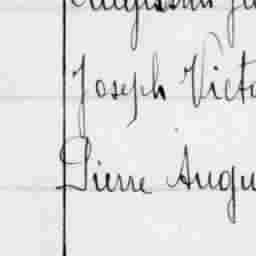 Joseph Victo
Pierre Augu